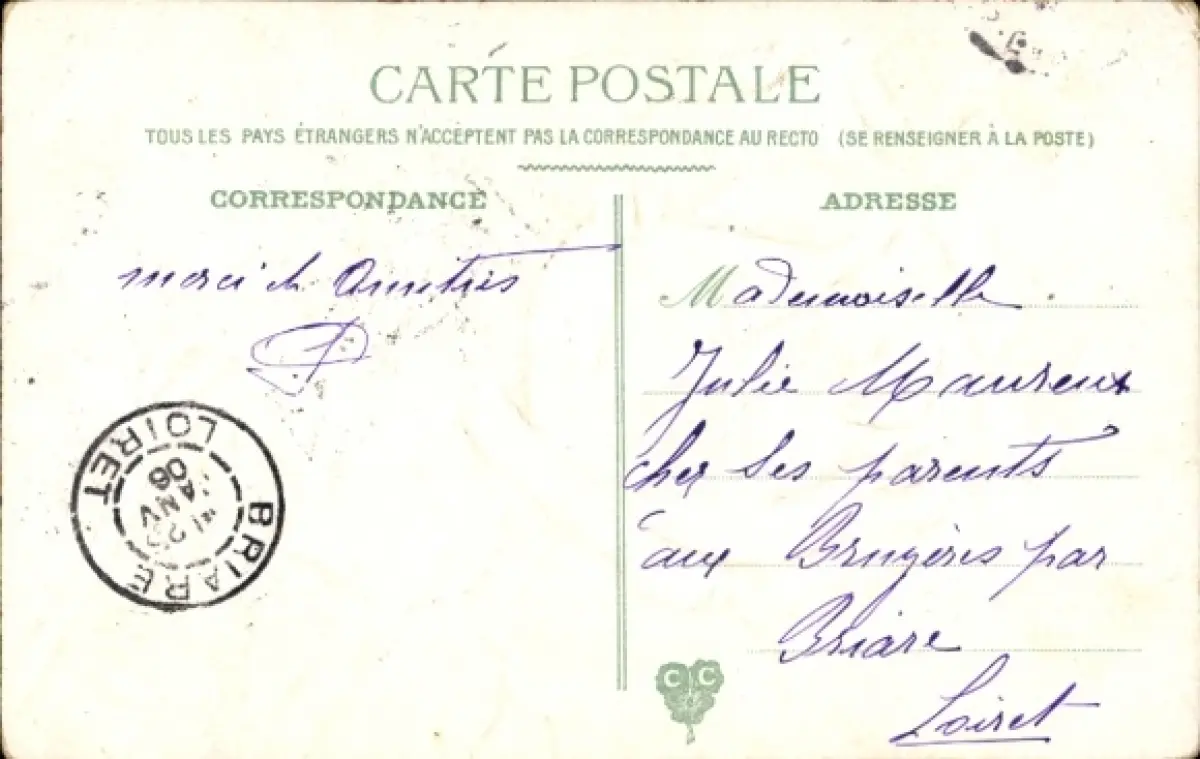 CARTE POSTALE
TOUS LES PAYS ÉTRANGERS N'ACCEPTENT PAS LA CORRESPONDANCE AU RECTO (SE RENSEIGNER À LA POSTE)
CORRESPONDANCE
merci et Amitiés
BRIARE
LOIRET
JANV
06
ADRESSE
Mademoiselle
Julie Maureux
chez ses parents
aux Bruyères par
Briare
Loiret
CC